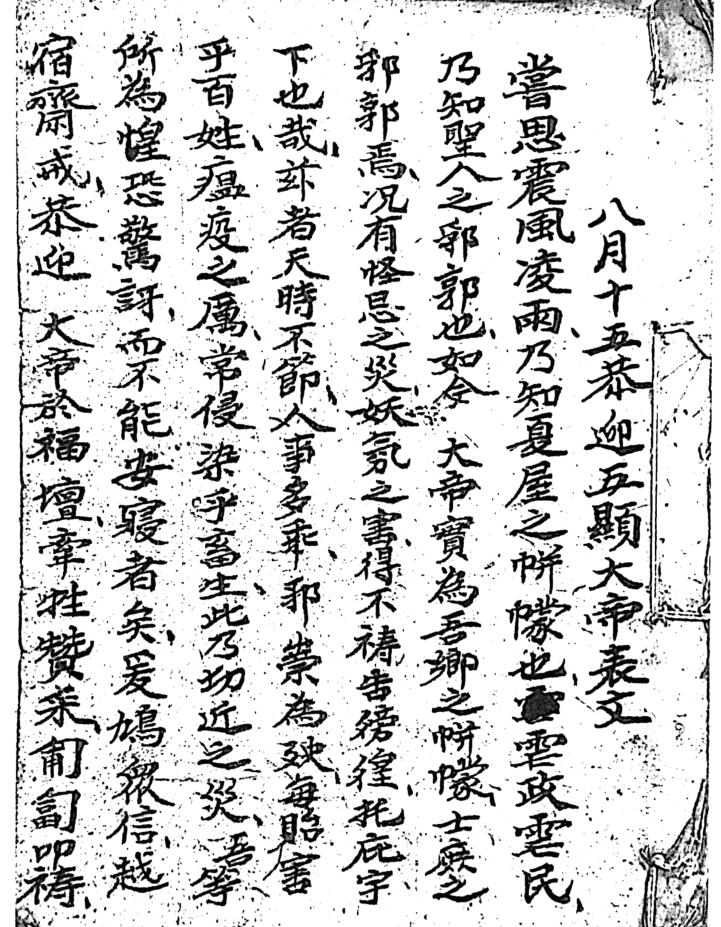 八月十五恭迎五顯大帝表文
嘗思震風凌雨、乃知夏屋之帡幪也、雲政雲民、
乃知聖人之郛郭也、如今 大帝實為吾鄉之帡幪、士庶之
郛郭焉、况有怪忌之災、妖氛之害、得不祷告徬徨、托庇宇
下也哉、玆者天時不節、人事多乖、邪祟為殃、每貽害
乎百姓、瘟疫之厲、常侵染乎畜生、此乃切近之災、吾等
所為惶恐驚訝、而不能安寢者矣、爰鳩衆信、越
宿齋戒、恭迎 大帝於福壇、牽牲贊采、匍匐叩祷、